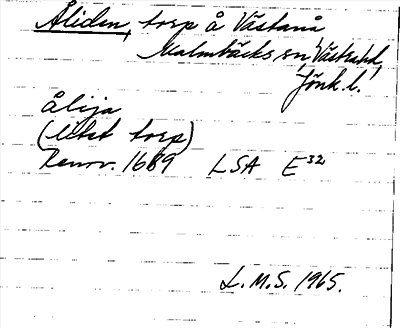 Åliden, torp å Västanå
Malmbäcks sn, Västra hd,
Jönk. l.
Ålija
(litet torp)
Renov. 1689 LSA E³²
L.M.S. 1965.